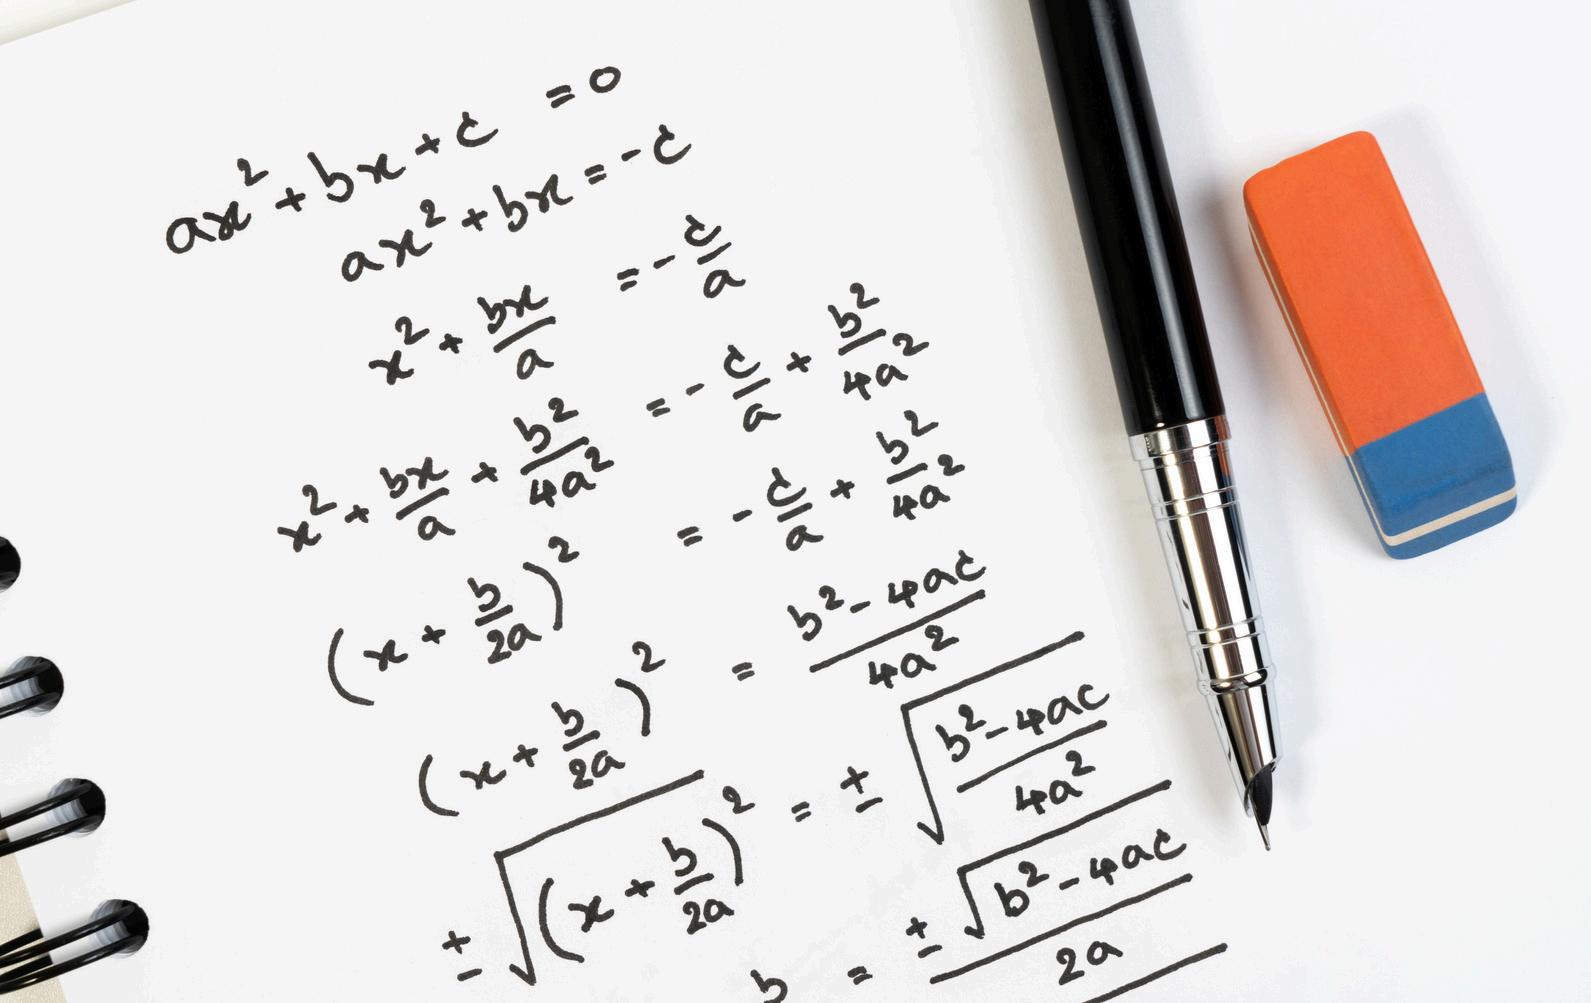 ax² + bx + c = 0
ax² + bx = -c
x² + bx/a = - c/a
x² + bx/a + b²/4a² = - c/a + b²/4a²
(x + b/2a)² = - c/a + b²/4a²
(x + b/2a)² = b² - 4ac/4a²
± √(x + b/2a)² = ± √b² - 4ac/4a²
b = ± √b² - 4ac/2a